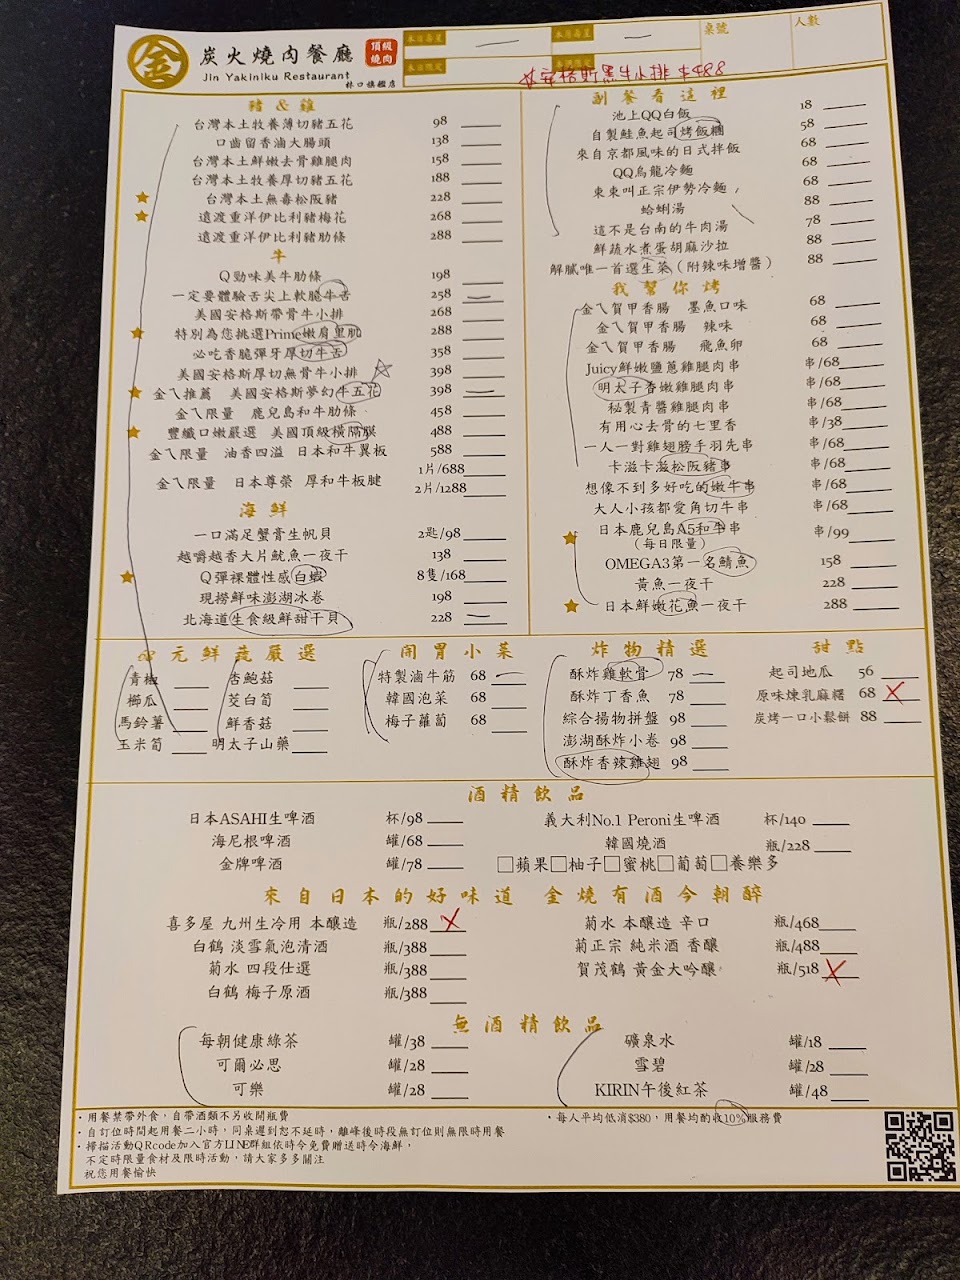 金 炭火燒肉餐廳 頂級燒肉
Jin Yakiniku Restaurant
林口旗艦店
桌號
人數
安格斯黑牛小排 $488
豬&雞
台灣本土牧養薄切豬五花 98
口齒留香滷大腸頭 138
台灣本土鮮嫩去骨雞腿肉 158
台灣本土牧養厚切豬五花 188
台灣本土無毒松阪豬 228
遠渡重洋伊比利豬梅花 268
遠渡重洋伊比利豬肋條 288
牛
Q勁味美牛肋條 198
一定要體驗舌尖上軟脆牛舌 258
美國安格斯帶骨牛小排 268
特別為您挑選Prime嫩肩里肌 288
必吃香脆彈牙厚切牛舌 358
美國安格斯厚切無骨牛小排 398
金ㄟ推薦 美國安格斯夢幻牛五花 398
金ㄟ限量 鹿兒島和牛肋條 458
豐纖口嫩嚴選 美國頂級橫隔膜 488
金ㄟ限量 油香四溢 日本和牛翼板 588
金ㄟ限量 日本尊榮 厚和牛板腱 1片/688
2片/1288
海鮮
一口滿足蟹膏生帆貝 2匙/98
越嚼越香大片魷魚一夜干 138
Q彈裸體性感白蝦 8隻/168
現撈鮮味澎湖冰卷 198
北海道生食級鮮甜干貝 228
副餐看這裡
池上QQ白飯 18
自製鮭魚起司烤飯糰 58
來自京都風味的日式拌飯 68
QQ烏龍冷麵 68
東東叫正宗伊勢冷麵 68
蛤蜊湯 88
這不是台南的牛肉湯 78
鮮蔬水煮蛋胡麻沙拉 88
解膩唯一首選生菜(附辣味增醬) 88
我幫你烤
金ㄟ賀甲香腸 墨魚口味 68
金ㄟ賀甲香腸 辣味 68
金ㄟ賀甲香腸 飛魚卵 68
Juicy鮮嫩鹽蔥雞腿肉串 串/68
明太子香嫩雞腿肉串 串/68
秘製青醬雞腿肉串 串/68
有用心去骨的七里香 串/38
一人一對雞翅膀手羽先串 串/68
卡滋卡滋松阪豬串 串/68
想像不到多好吃的嫩牛串 串/68
大人小孩都愛角切牛串 串/68
日本鹿兒島A5和牛串 串/99
(每日限量)
OMEGA3第一名鯖魚 158
黃魚一夜干 228
日本鮮嫩花魚一夜干 288
68元鮮蔬嚴選
青椒 杏鮑菇
櫛瓜 茭白筍
馬鈴薯 鮮香菇
玉米筍 明太子山藥
開胃小菜
特製滷牛筋 68
韓國泡菜 68
梅子蘿蔔 68
炸物精選
酥炸雞軟骨 78
酥炸丁香魚 78
綜合揚物拼盤 98
澎湖酥炸小卷 98
酥炸香辣雞翅 98
甜點
起司地瓜 56
原味煉乳麻糬 68
炭烤一口小鬆餅 88
酒精飲品
日本ASAHI生啤酒 杯/98
海尼根啤酒 罐/68
金牌啤酒 罐/78
義大利No.1 Peroni生啤酒 杯/140
韓國燒酒 瓶/228
□蘋果□柚子□蜜桃□葡萄□養樂多
來自日本的好味道 金燒有酒今朝醉
喜多屋 九州生冷用 本釀造 瓶/288
白鶴 淡雪氣泡清酒 瓶/388
菊水 四段仕選 瓶/388
白鶴 梅子原酒 瓶/388
菊水 本釀造 辛口 瓶/468
菊正宗 純米酒 香釀 瓶/488
賀茂鶴 黃金大吟釀 瓶/518
無酒精飲品
每朝健康綠茶 罐/38
可爾必思 罐/28
可樂 罐/28
礦泉水 罐/18
雪碧 罐/28
KIRIN午後紅茶 罐/48
・用餐禁帶外食,自帶酒類不另收開瓶費
・自訂位時間起用餐二小時,同桌遲到恕不延時,離峰後時段無訂位則無限時用餐
・掃描活動QRcode加入官方LINE群組依時令免費贈送時令海鮮,
不定時限量食材及限時活動,請大家多多關注
祝您用餐愉快
・每人平均低消$380,用餐均酌收10%服務費